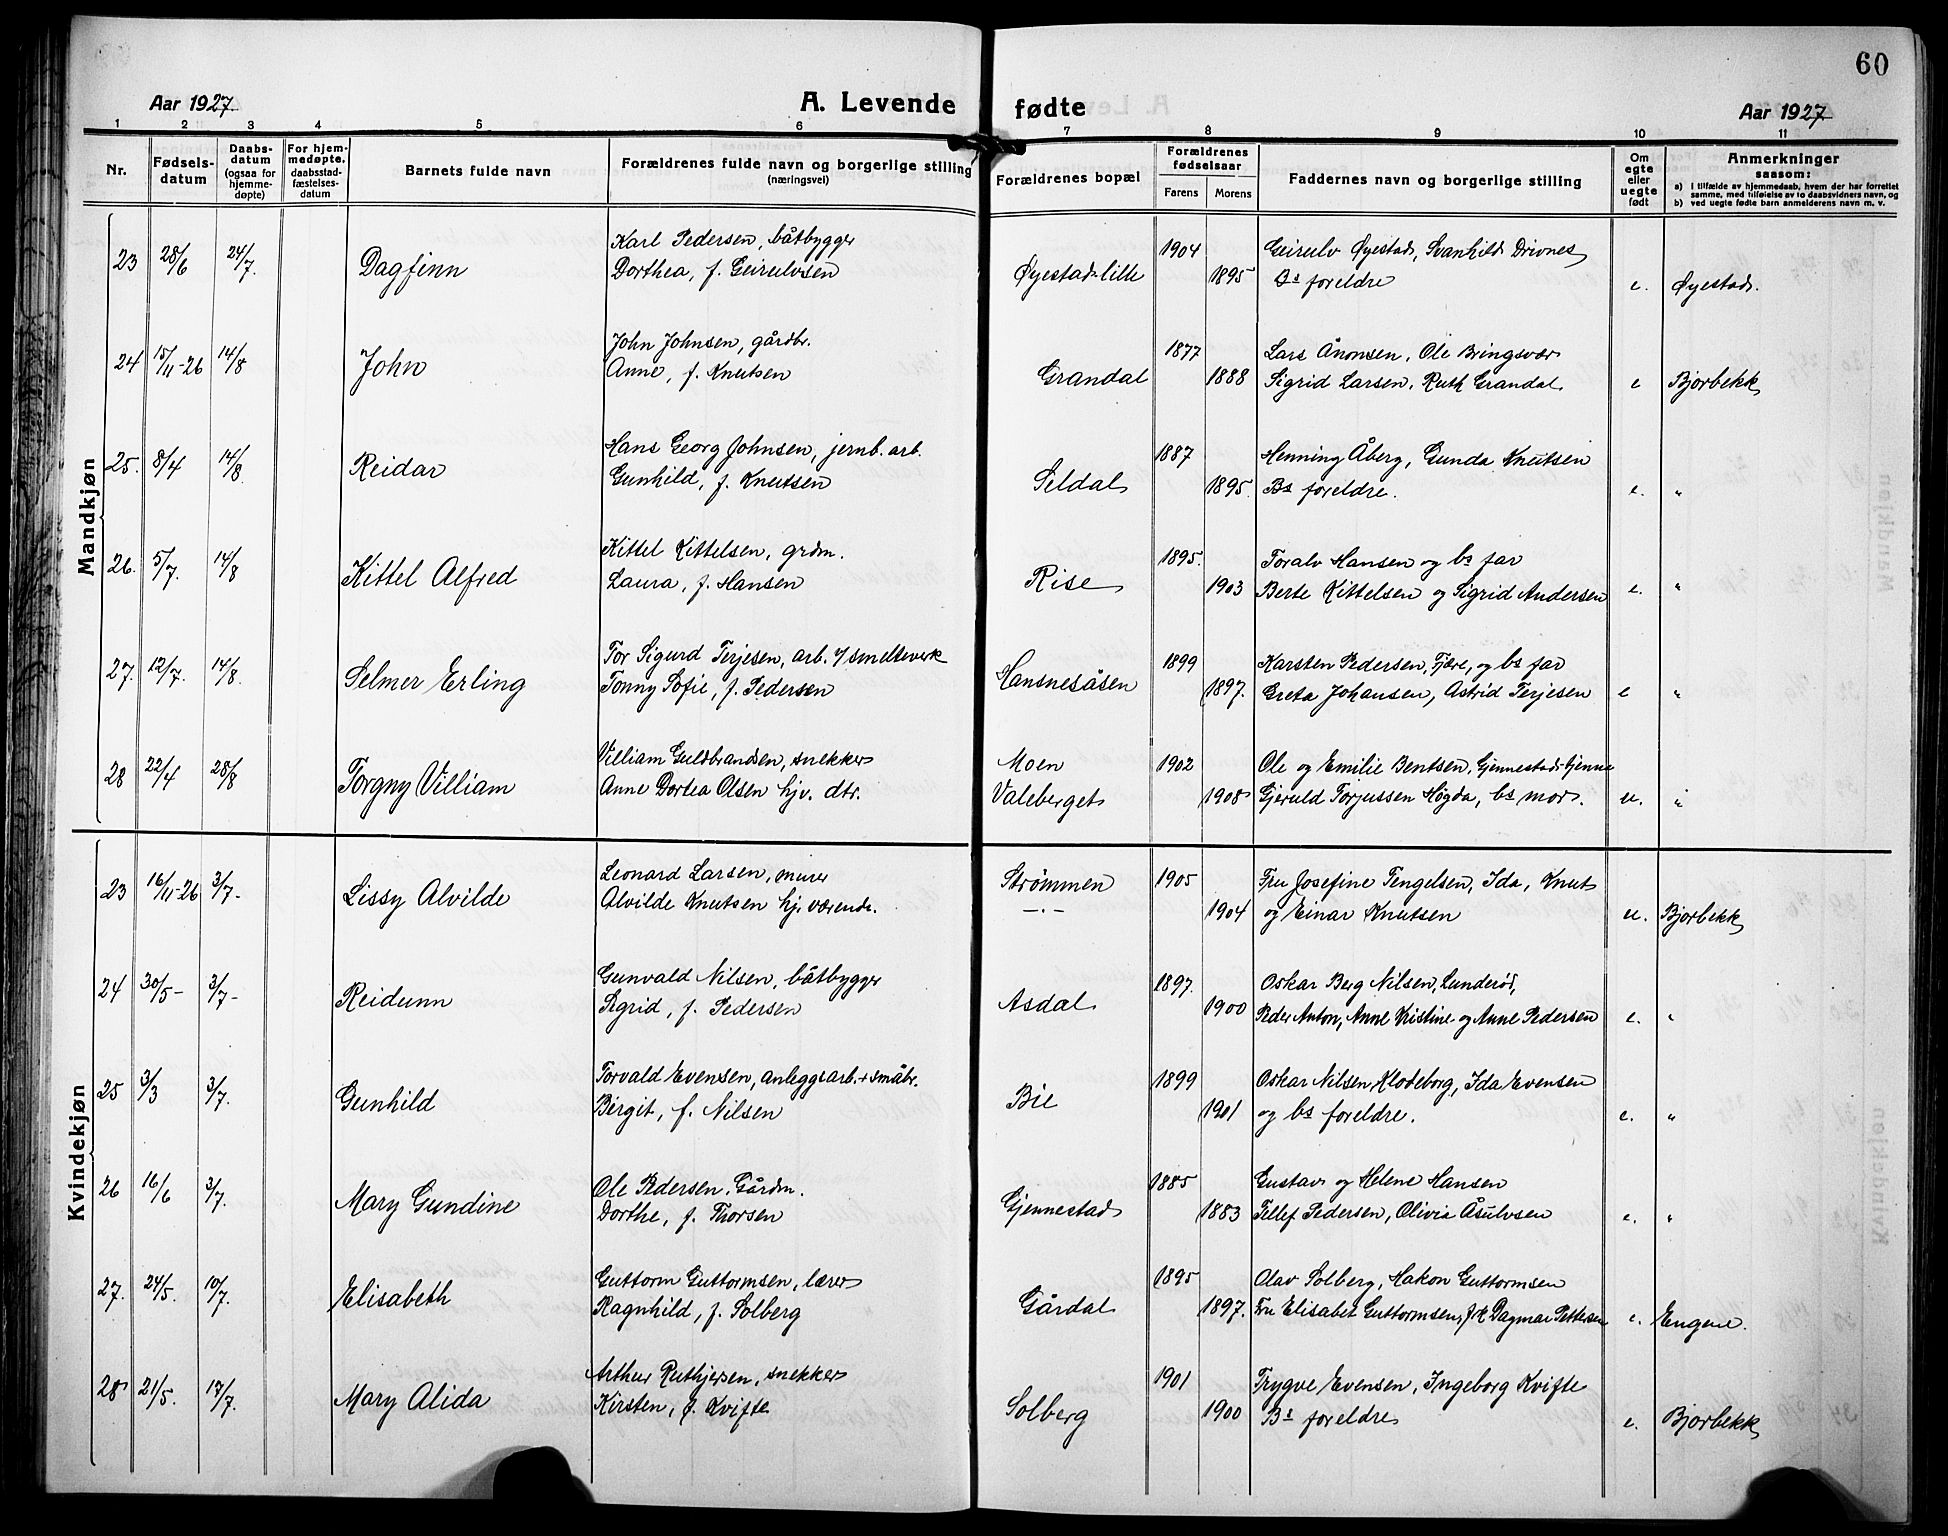 60
Aar 1927.
A. Levende fødte
Aar 1927
1 2 3 4 5 6 7 8 9 10 11
Nr.
Fødsels-
datum
Daabs-
datum
(ogsaa for
hjemme-
døpte)
For hjem-
medøpte.
daabsstad-
fæstelses-
datum
Barnets fulde navn
Forældrenes fulde navn og borgerlige stilling
(næringsvei)
Forældrenes bopæl
Forældrenes
fødselsaar
Farens Morens
Faddernes navn og borgerlige stilling
Om
egte
eller
uegte
født
Anmerkninger
saasom:
a) i tilfælde av hjemmedaab, hvem der har forrettet
samme, med tilføielse av to daabsvidners navn, og
b) ved uegte fødte barn anmelderens navn m. v.
Mandkjøn
Karl Pedersen, båtbygger 1904 Geirulv Øyestad, Svanhild Drivnes
23 28/6 24/7. Dagfinn Dorthea, f. Geirulvsen Øyestad-lille 1895 Bs foreldre e. Øyestad.
John Johnsen, gårdbr. 1877 Lars Ånonsen, Ole Bringsvær
24 15/11-26 14/8 John Anne, f. Knutsen Grandal 1888 Sigrid Larsen, Ruth Grandal. e Bjorbekk
Hans Georg Johnsen, jernb. arb. 1887 Henning Åberg, Gunda Knutsen
25. 8/4 14/8. Reidar Gunhild, f. Knutsen Seldal 1895. Bs foreldre. e. "
Kittel Kittelsen, grdm. 1895. Toralv Hansen og bs far
26. 5/7. 14/8 Kittel Alfred Laura, f. Hansen Rise 1903 Berte Kittelsen og Sigrid Andersen e. "
Tor Sigurd Terjesen, arb. v/ smelteverk 1899 Karsten Pedersen, Fjære, og bs far
27. 12/7. 14/8. Selmer Erling Tonny Sofie, f. Pedersen Hansnesåsen 1897. Greta Johansen, Astrid Terjesen e "
Villiam Guldbrandsen, snekker Moen 1902 Ole og Emilie Bentsen, Gjennestad-Gjenne
28 22/4 28/8 Torgny Villiam Anne Dortea Olsen hjv. dtr. Valeberget 1908 Gjeruld Torjussen Høgda, bs mor. u. "
Kvindekjøn
Leonard Larsen, murer Strømmen 1905 Fru Josefine Tengelsen, Ida, Knut
23 16/11-26 3/7- Lissy Alvilde Alvilde Knutsen hj. værende. -.- 1904 og Einar Knutsen u. Bjorbekk
Gunvald Nilsen, båtbygger 1897. Oskar Berg Nilsen, Lunderød,
24 30/5- 3/7- Reidunn Sigrid, f. Pedersen Asdal 1900 Peder Anton, Anne Kristine og Anne Pedersen e. "
Torvald Evensen, anleggsarb. + småbr. 1899 Oskar Nilsen, Klodeborg, Ida Evensen
25 3/3 3/7. Gunhild Birgit, f. Nilsen Bie 1901 og bs foreldre. e. "
Ole Pedersen. Gårdm. 1885 Gustav og Helene Hansen
26 16/6 3/7. Mary Gundine Dorthe, f. Thorsen Gjennestad 1883 Tellef Pedersen, Olivia Åsulvsen e. "
Guttorm Guttormsen, lærer 1895 Olav Solberg, Hakon Guttormsen
27. 24/5. 10/7. Elisabeth Ragnhild, f. Solberg Gårdal 1897. Fru Elisabet Guttormsen, frk Dagmar Pettersen e. Engene.
Arthur Ruthjersen, snekker 1901 Trygve Evensen, Ingeborg Kvifte
28 21/5. 17/7. Mary Alida Kirsten, f. Kvifte Solberg 1900 Bs foreldre e. Bjorbekk